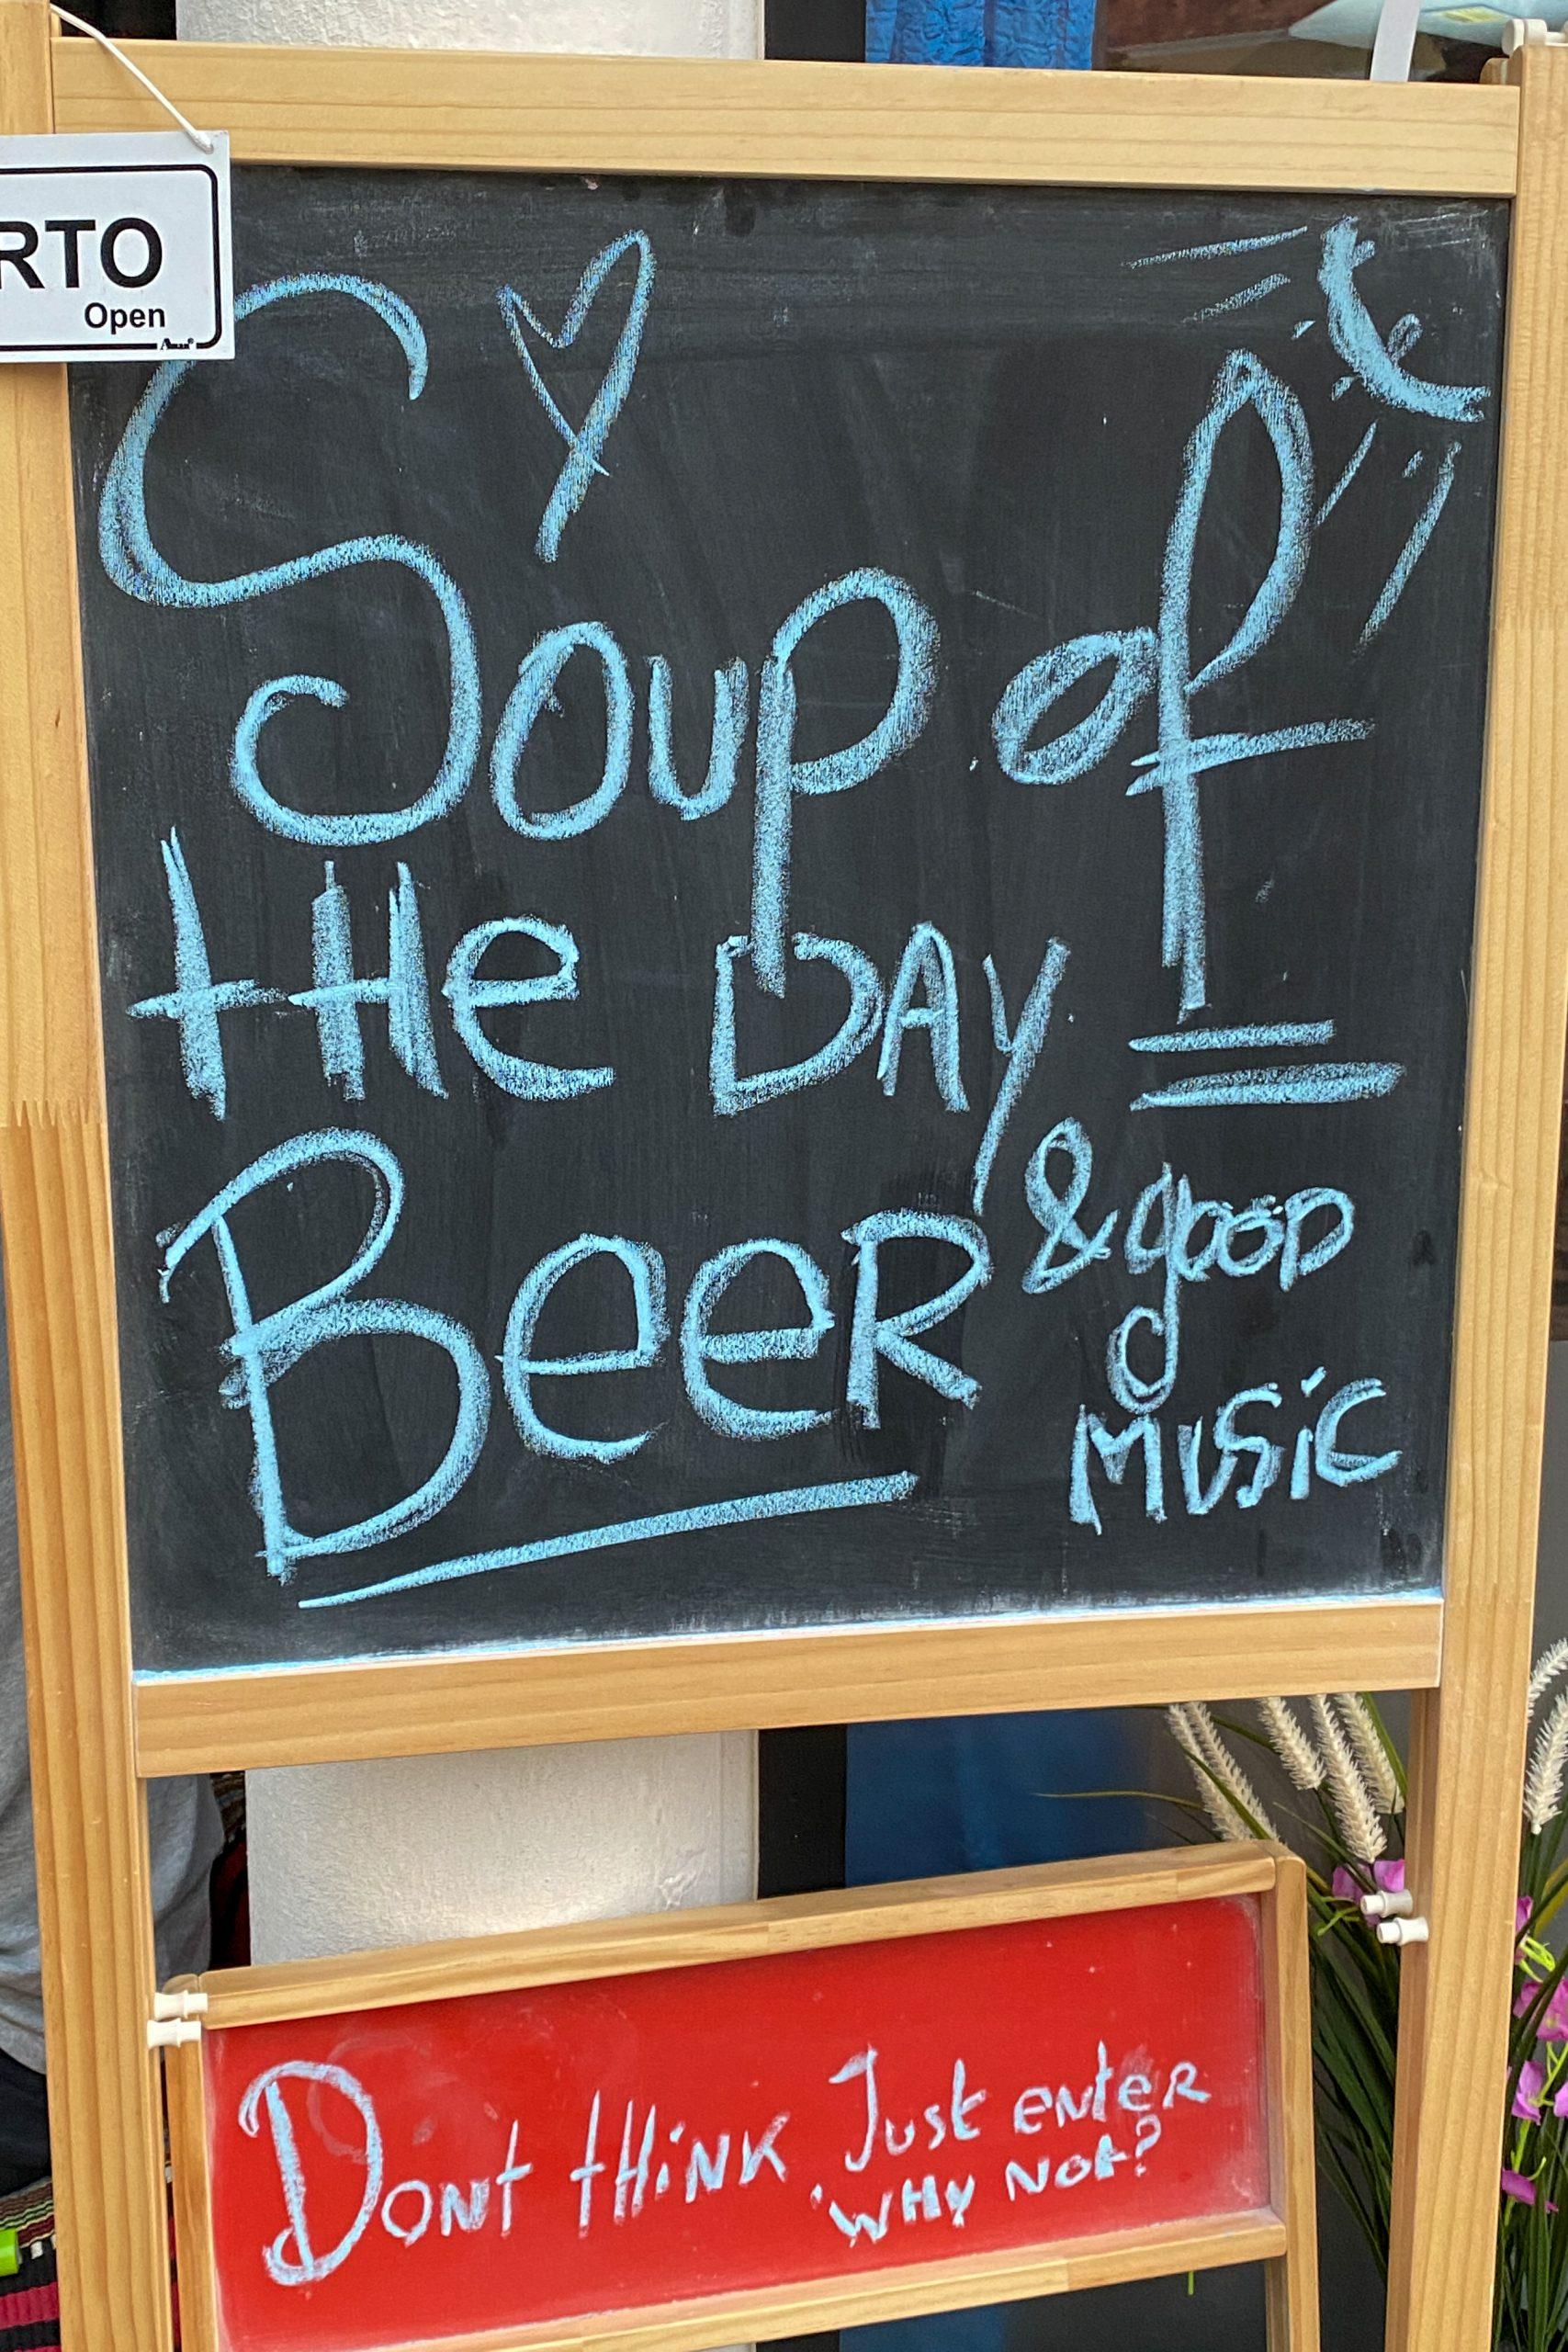 RTO
Open
Soup of
tHe DAy
BeeR & gooD
MUSiC
Dont tHiNK Just enteR
WHy Not?